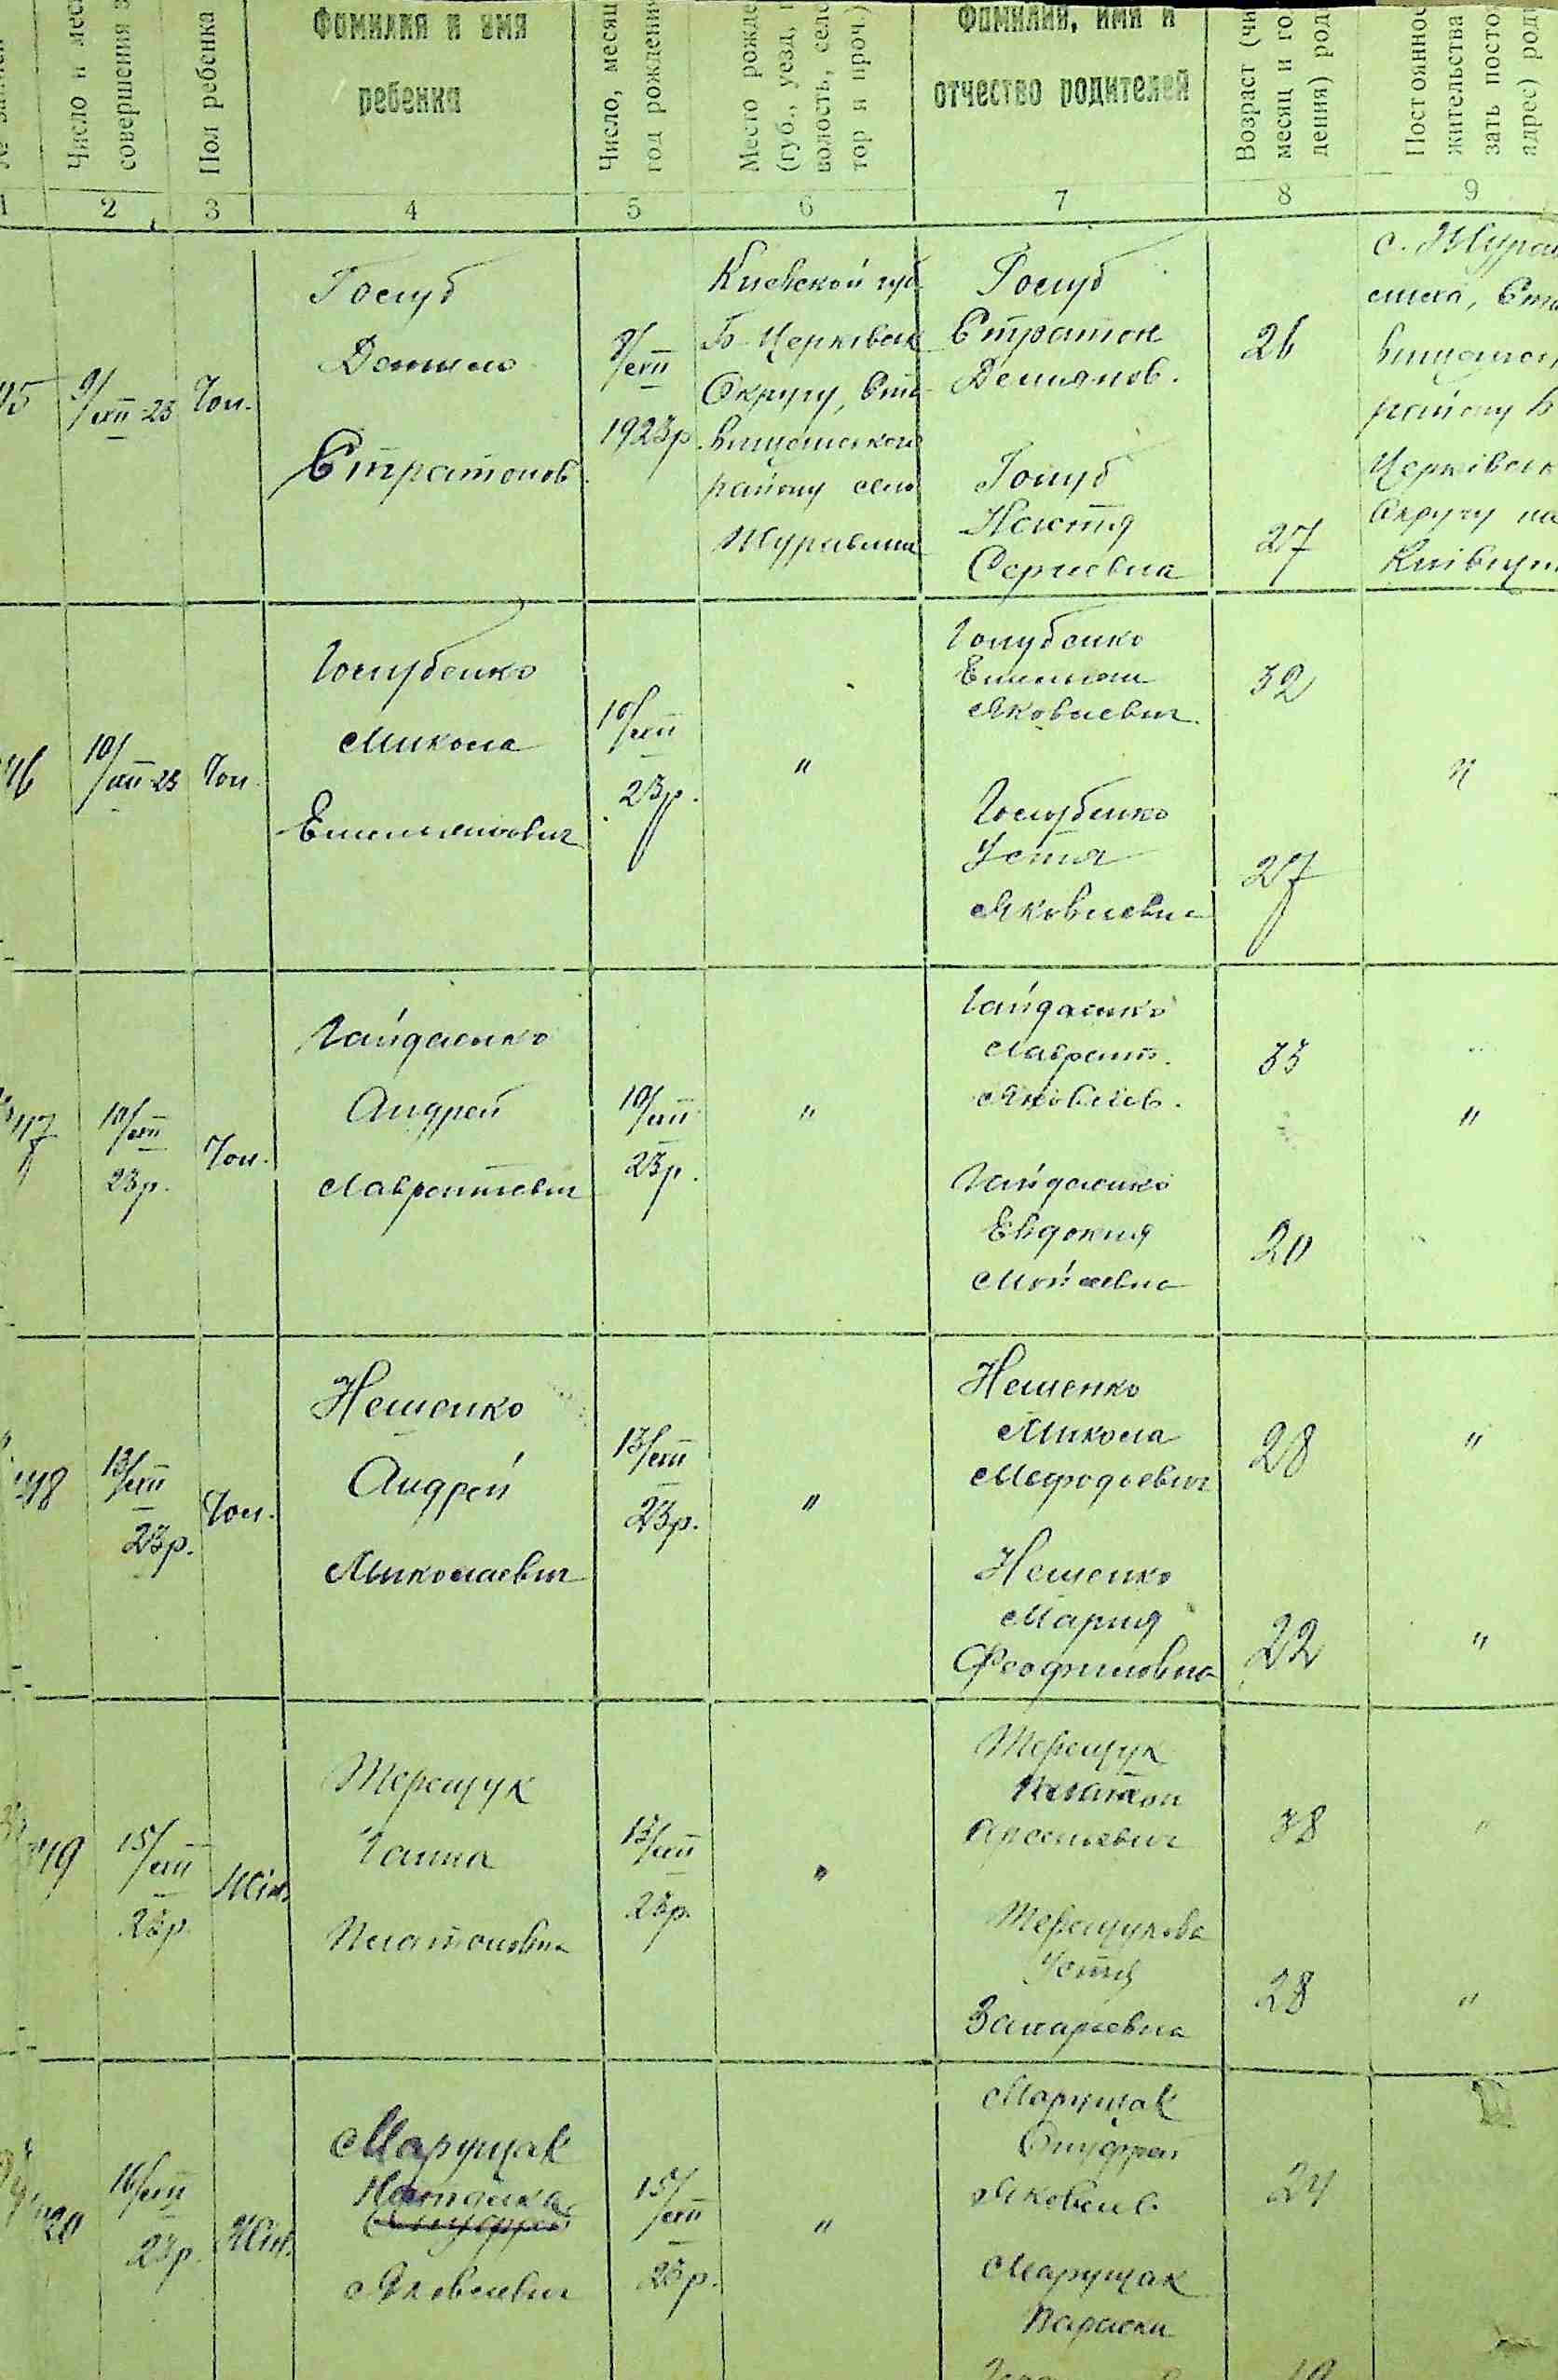 Число и мес
совершения з
Пол ребенка
Фамилия и имя
ребенка
Число, месяц
год рождения
Место рожде
(губ., уезд,
волость, село
тор и проч.)
Фамилии, имя и
отчество родителей
Возраст (чи
месяц и го
дения) род
Постоянное
жительства
зать посто
адрес) роди
1 2 3 4 5 6 7 8 9
9/VIII 23
Чол.
Голуб
Данило
Стратонов.
9/VIII
1923р.
Киевской губ
Б-Церківськ
Округу, Ста-
вищанського
району село
Журавлиха
Голуб
Стратон
Демянов.
26
Голуб
Настя
Сергиевна
27
с. Журав
лиха, Ста
вищанск
району Б
Церківсько
Округу на
Київщин
10/VIII 23
Чол.
Голубенко
Микола
Емельянович
10/VIII
23р.
"
Голубенко
Емельян
Яковлевич.
32
Голубенко
Устя
Яковлевна
27
"
10/VIII
23р.
Чол.
Гайдаенко
Андрей
Лаврентиевич
10/VIII
23р.
"
Гайдаенко
Лаврент.
Яковлев.
33
Гайдаенко
Евдокия
Мойсеевна
20
"
13/VIII
23р.
Чол.
Нешенко
Андрей
Миколаевич
13/VIII
23р.
"
Нешенко
Микола
Мефодиевич
28
"
Нешенко
Мария
Феофиловна
22
"
15/VIII
23р.
Жін.
Терещук
Ганна
Платоновна
13/VIII
23р.
"
Терещук
Платон
Арсеньевич
38
"
Терещукова
Устя
Захарьевна
28
"
16/VIII
23р.
Жін.
Марущак
Наталка
Онуфрей
Яковлевич
15/VIII
23р.
"
Марущак
Онуфрей
Яковлев
24
Марущак
Параска